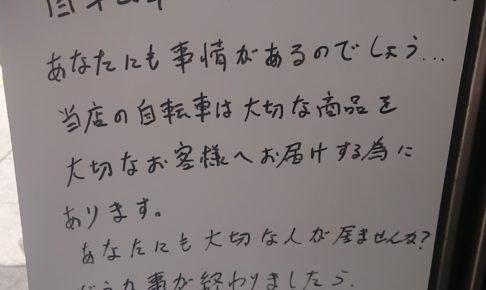 あなたにも事情があるのでしょう…
当店の自転車は大切な商品を
大切なお客様へお届けする為に
あります。
あなたにも大切な人が居ませんか?
事が終わりましたら